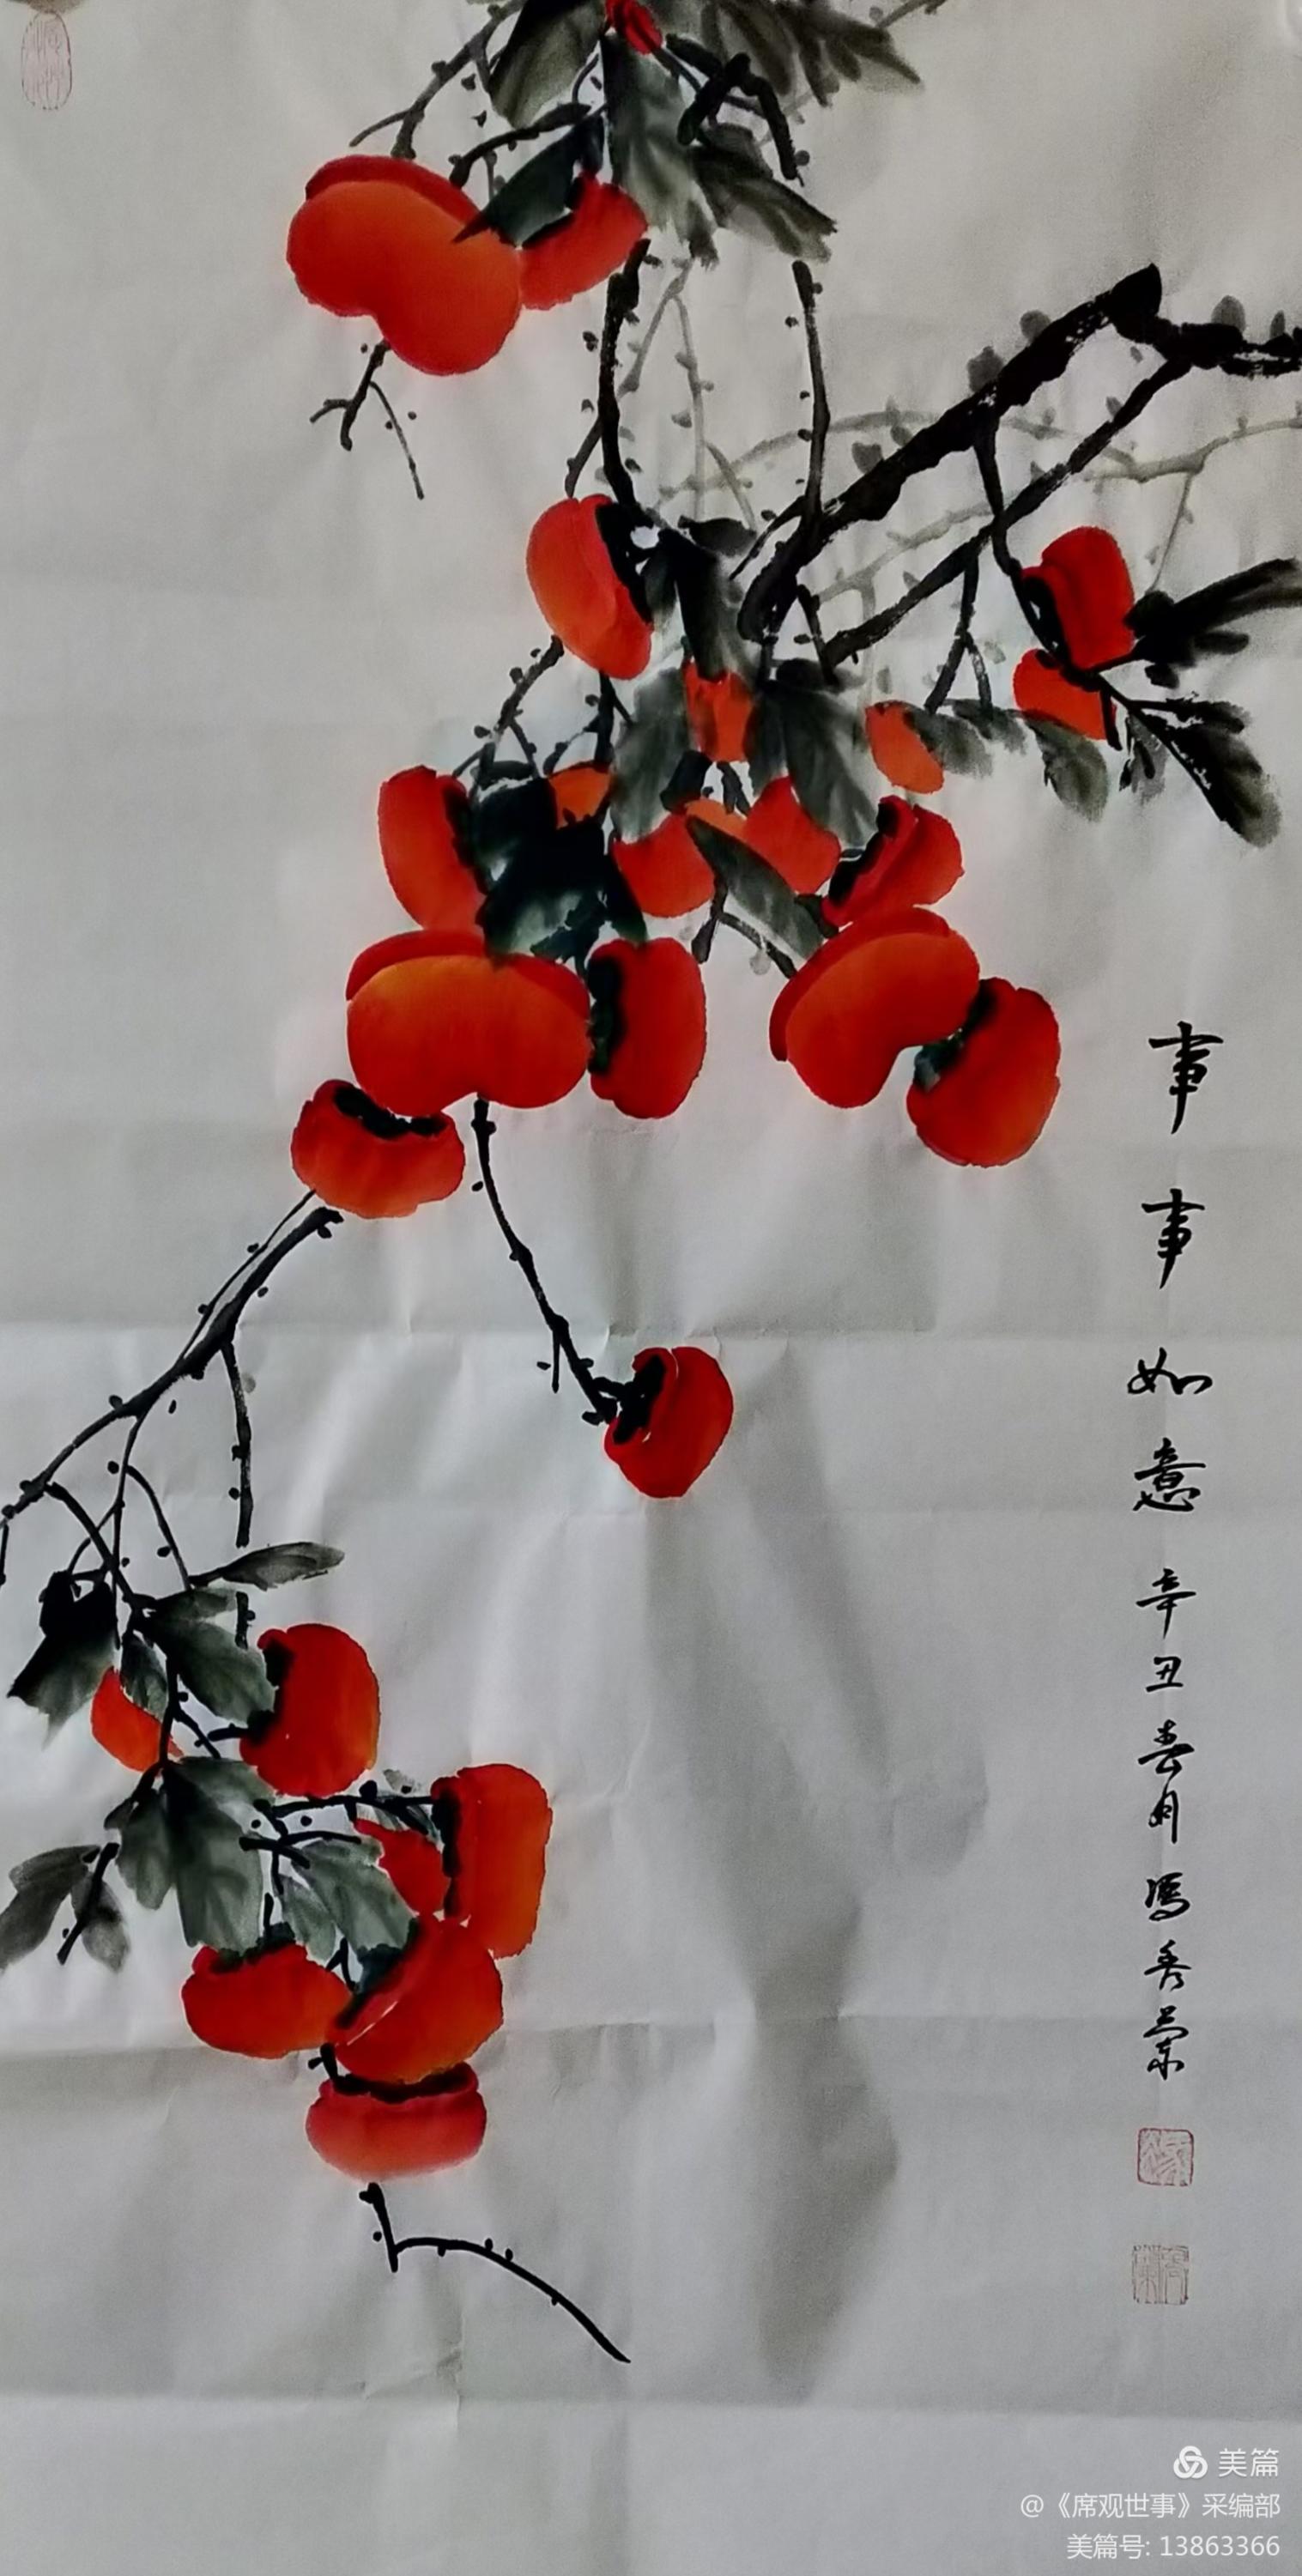 事事如意 辛丑春月 冯秀荣
美篇
@《席观世事》采编部
美篇号: 13863366